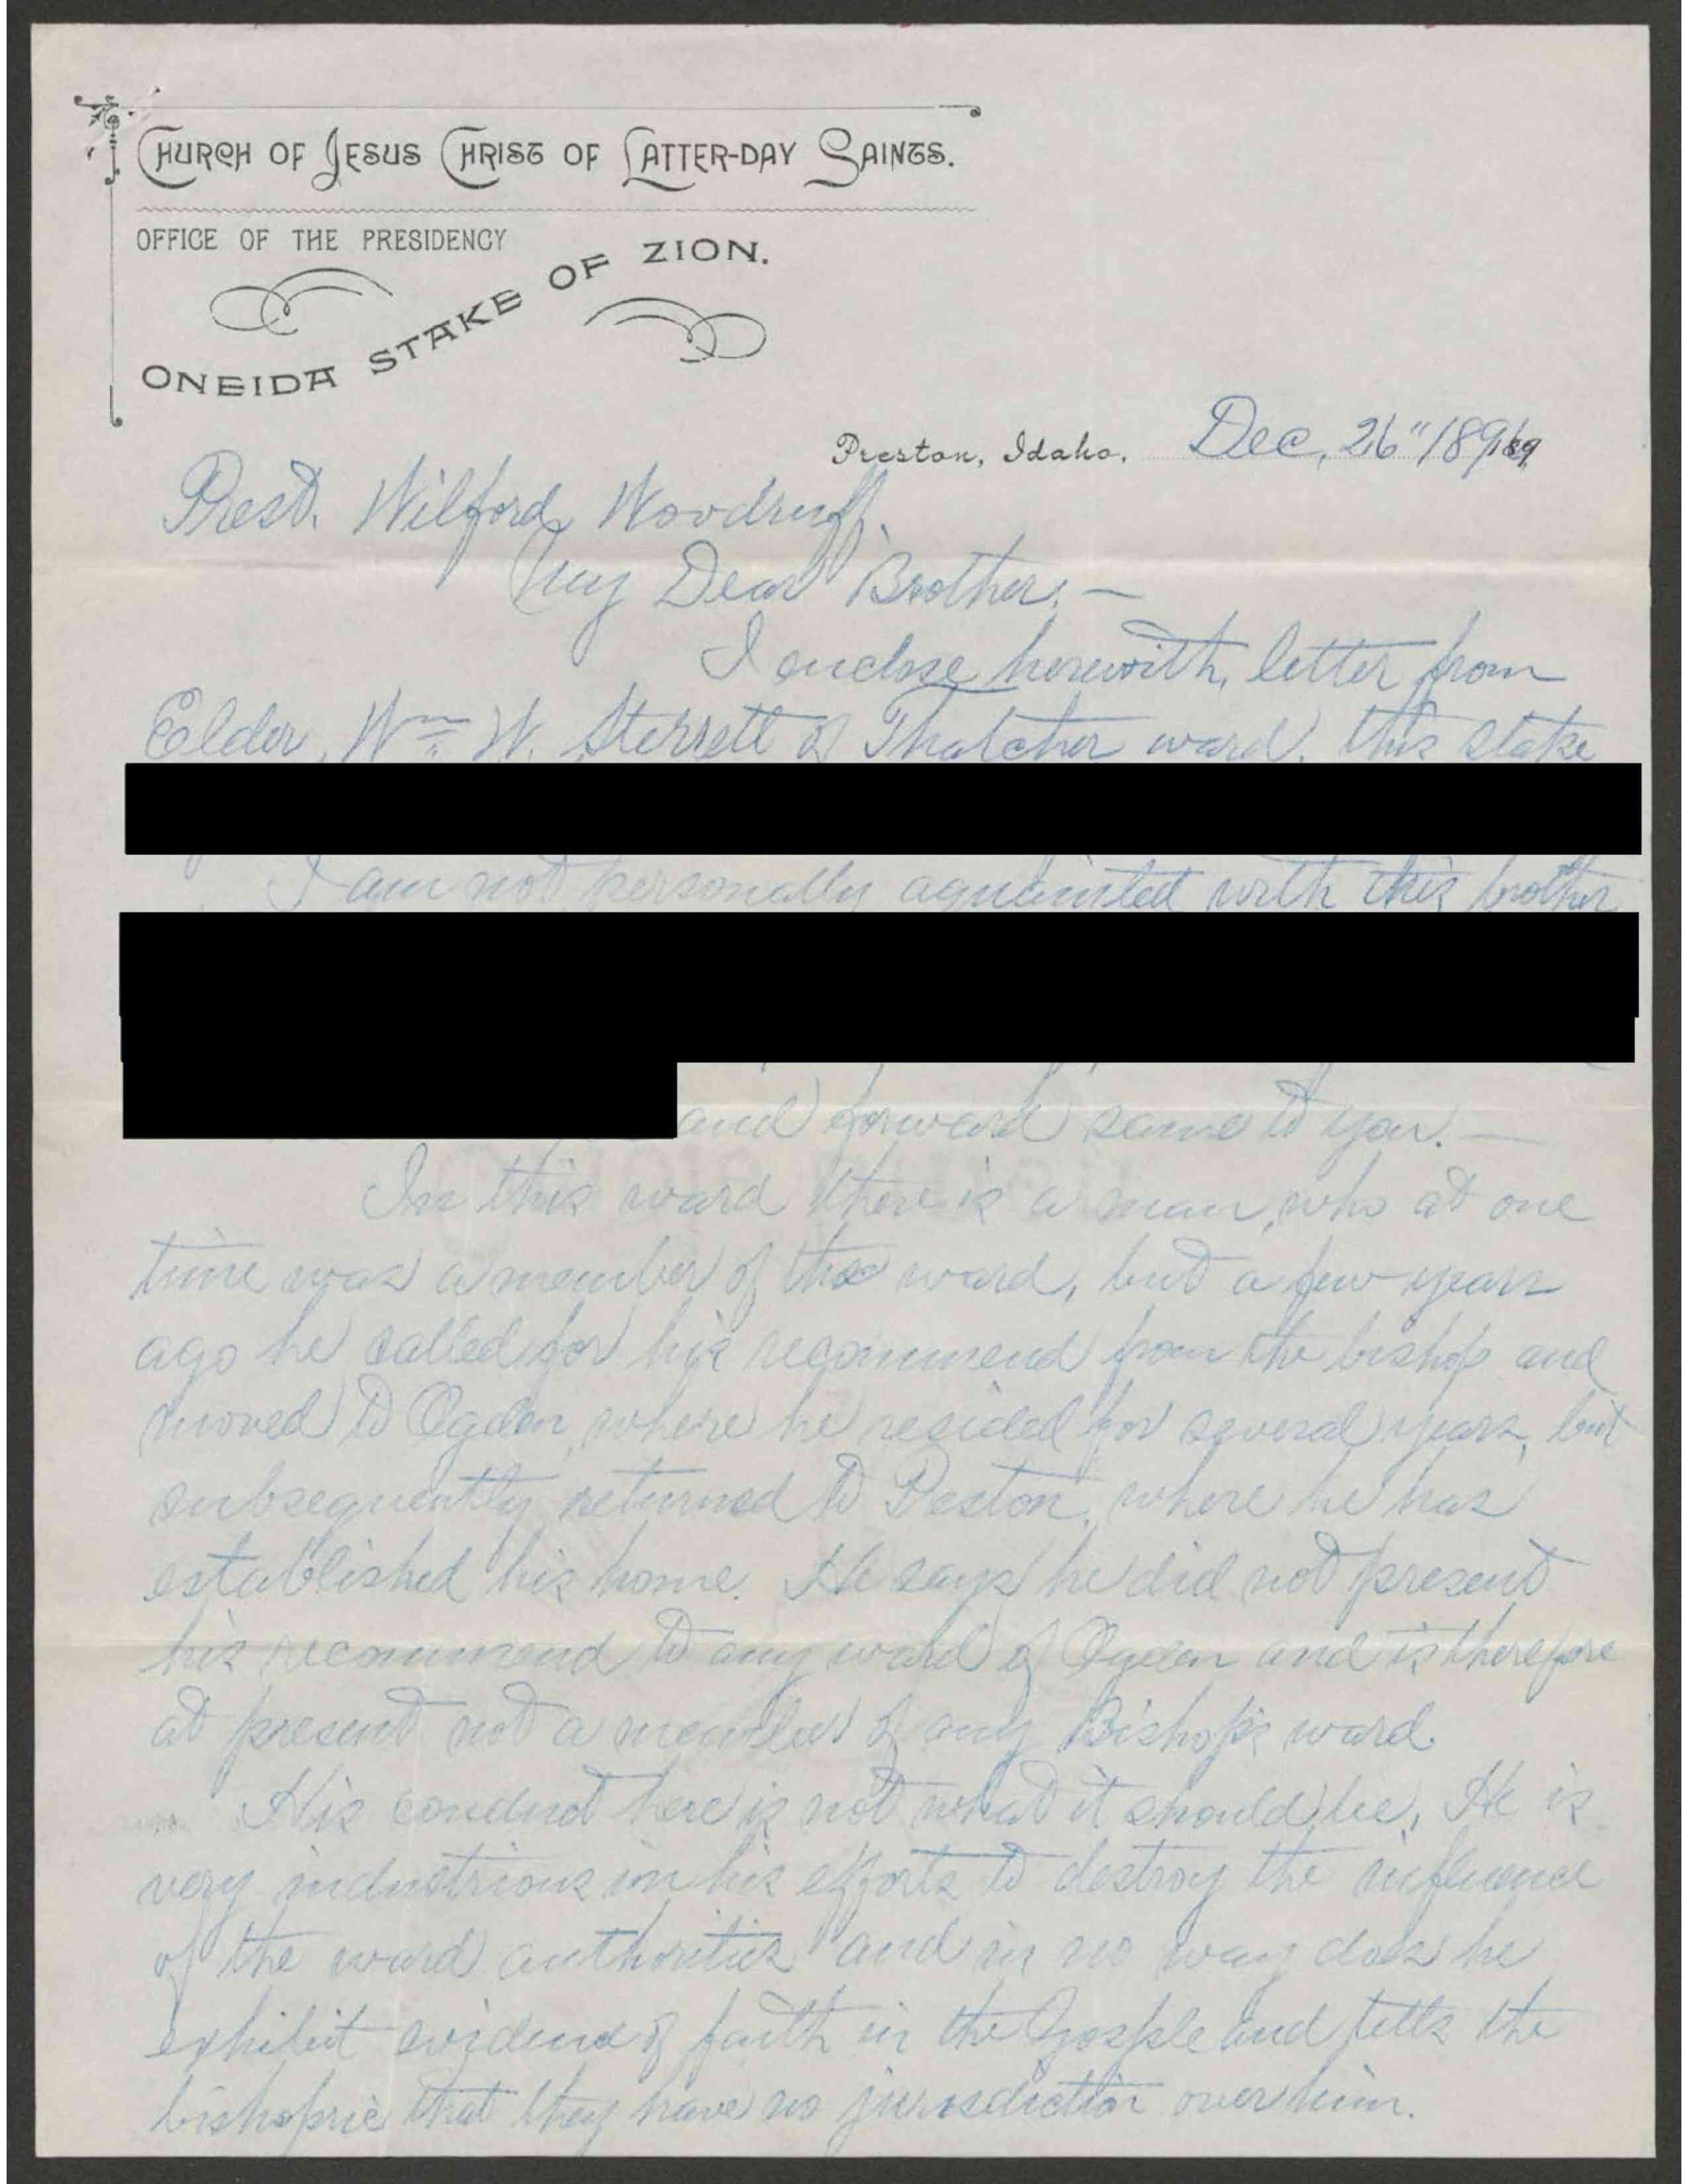 CHURCH OF JESUS CHRIST OF LATTER-DAY SAINTS.
OFFICE OF THE PRESIDENCY
ONEIDA STAKE OF ZION.
Preston, Idaho, Dec, 26" 189
Prest. Wilford Woodruff.
My Dear Brother; —
I enclose herewith, letter from
Elder, Wm W. Sterrett of Thatcher ward, this stake
I am not personally aquainted with this brother
and forward same to you. —
In this ward there is a man, who at one
time was a member of the ward, but a few years
ago he called for his recommend from the bishop and
moved to Ogden, where he resided for several years, but
subsequently returned to Preston, where he has
established his home. He says he did not present
his recommend to any ward of Ogden and is therefore
at present not a member of any Bishop's ward.
His conduct here is not what it should be, He is
very industrious in his efforts to destroy the influence
of the ward authorities and in no way does he
exhibit evidence of faith in the Gosple and tells the
bishopric that they have no jurisdiction over him.